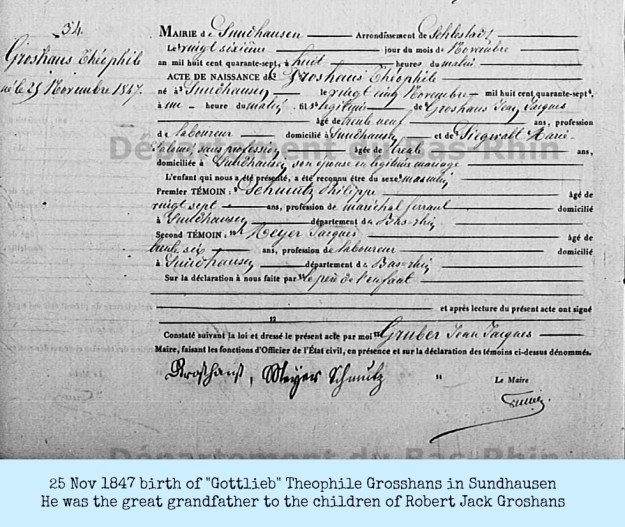 54.
Groshaus Théophile
né le 25 Novembre 1847.
MAIRIE de Sundhausen Arrondissement de Schlestadt
Le vingt sixième jour du mois de Novembre
an mil huit cent quarante-sept, à huit heures du matin
ACTE DE NAISSANCE de Groshaus Théophile
né à Sundhausen le vingt cinq Novembre mil huit cent quarante-sept
à une heure du matin fils légitime de Groshaus Jean Jacques
âgé de trente neuf ans, profession
de laboureur domicilié à Sundhausen et de Siegwalt Marie
Salomé, sans profession âgée de trente ans,
domiciliée à Sundhausen son épouse en légitime mariage
L'enfant qui nous a été présenté, a été reconnu être du sexe masculin
Premier TÉMOIN : Schmutz Philippe âgé de
vingt sept ans, profession de maréchal ferrant domicilié
à Sundhausen département du Bas-rhin
Second TÉMOIN : Meyer Jacques âgé de
trente six ans, profession de laboureur domicilié
à Sundhausen département du Bas-rhin
Sur la déclaration à nous faite par le père de l'enfant
et après lecture du présent acte ont signé
Constaté suivant la loi et dressé le présent acte par moi Gruber Jean Jacques
Maire, faisant les fonctions d'Officier de l'État civil, en présence et sur la déclaration des témoins ci-dessus dénommés.
Groshans, Meyer Schmutz Le Maire
Département du Bas-Rhin
Département du Bas-Rhin
25 Nov 1847 birth of "Gottlieb" Theophile Grosshans in Sundhausen
He was the great grandfather to the children of Robert Jack Groshans